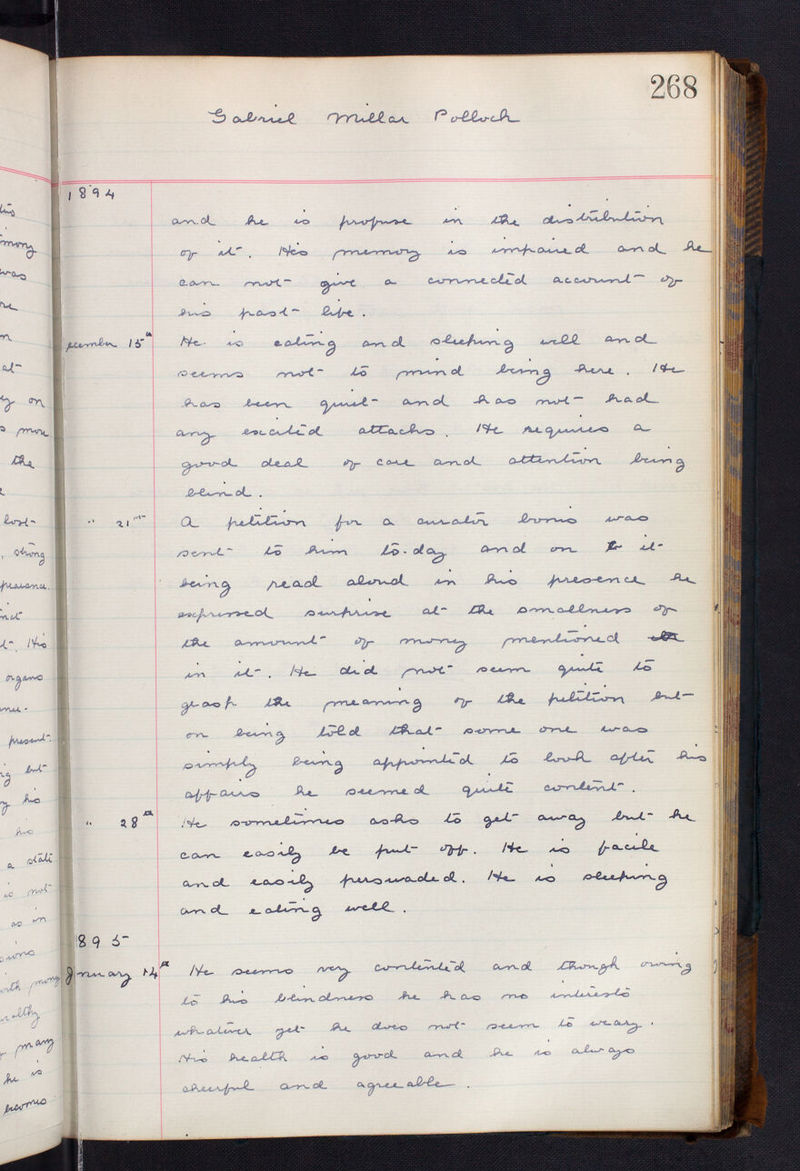 268
Gabriel Millar Pollock
1894
and he is profuse in the distribution
of it. His memory is impaired and he
can not give a connected account of
his past life.
ecember 15th He is eating and sleeping well and
seems not to mind being here. He
has been quiet and has not had
any excited attacks. He requires a
good deal of care and attention being
blind.
" 21st A petition for a curator bonis was
sent to him to-day and on it
being read aloud in his presence he
expressed surprise at the smallness of
the amount of money mentioned
in it. He did not seem quite to
grasp the meaning of the petition but
on being told that some one was
simply being appointed to look after his
affairs he seemed quite content.
" 28th He sometimes asks to get away but he
can easily be put off. He is facile
and easily persuaded. He is sleeping
and eating well.
895
January 14th He seems very contented and though owing
to his blindness he has no interests
whatever yet he does not seem to weary.
His health is good and he is always
cheerful and agreeable.